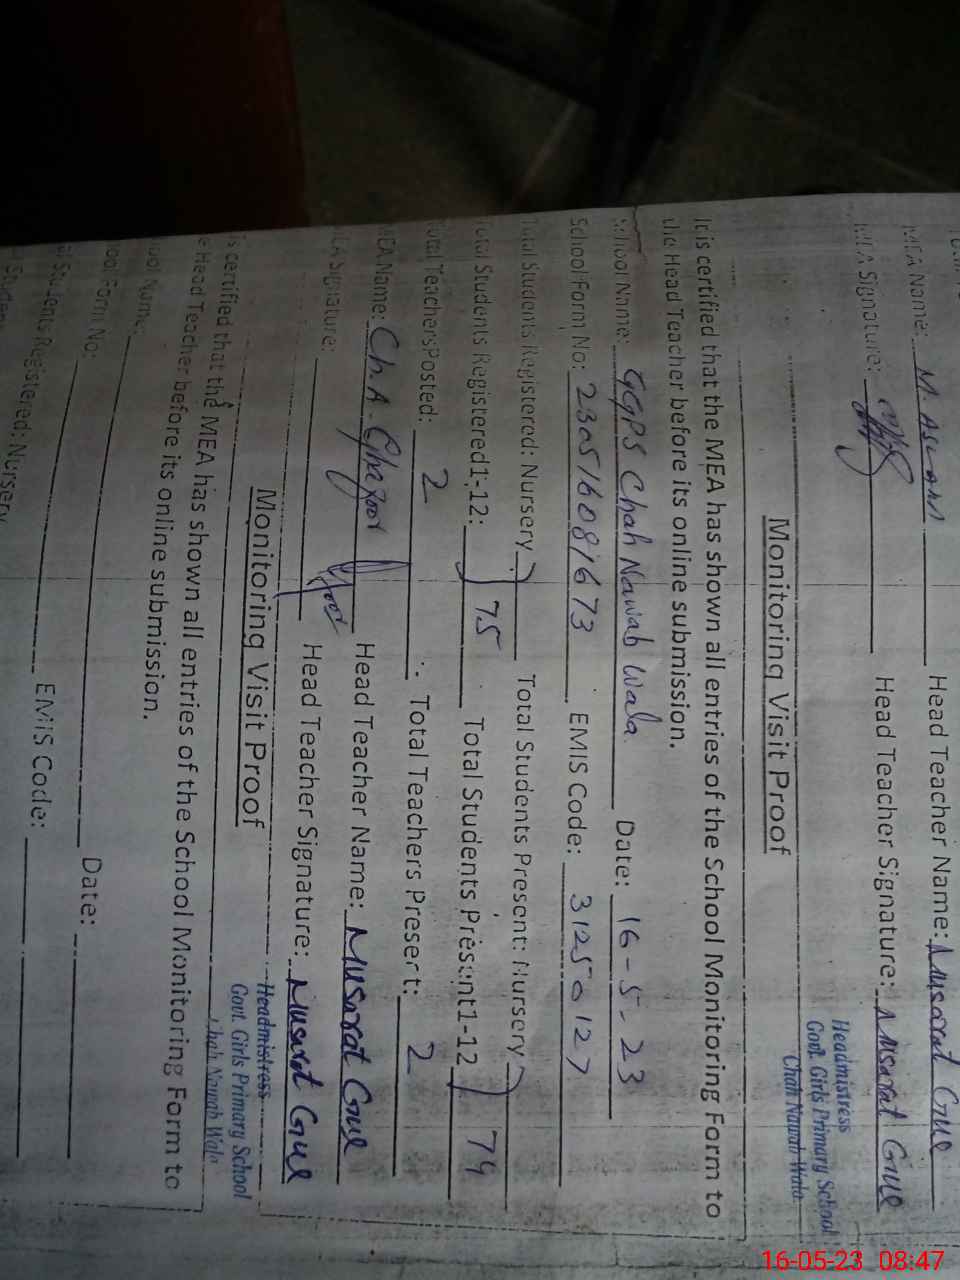 MEA Name: M. Aslam Head Teacher Name: Musarat Gul
MEA Signature: Head Teacher Signature: Musarat Gul
Headmistress
Govt. Girls Primary School
Chah Nawab Wala
Monitoring Visit Proof
It is certified that the MEA has shown all entries of the School Monitoring Form to
the Head Teacher before its online submission.
School Name: GGPS Chah Nawab Wala Date: 16-5-23
School Form No: EMIS Code: 31250127
Total Students Registered: Nursery Total Students Present: Nursery
Total Students Registered1-12: 75 Total Students Present1-12 74
Total Teachers Posted: 2 Total Teachers Present: 2
MEA Name: Ch. A. Head Teacher Name: Musarat Gul
MEA Signature: Head Teacher Signature: Musarat Gul
Headmistress
Govt. Girls Primary School
Chah Nawab Wala
Monitoring Visit Proof
is certified that the MEA has shown all entries of the School Monitoring Form to
e Head Teacher before its online submission.
ool Name: Date:
ool Form No: EMIS Code:
al Students Registered: Nursery
16-05-23 08:47